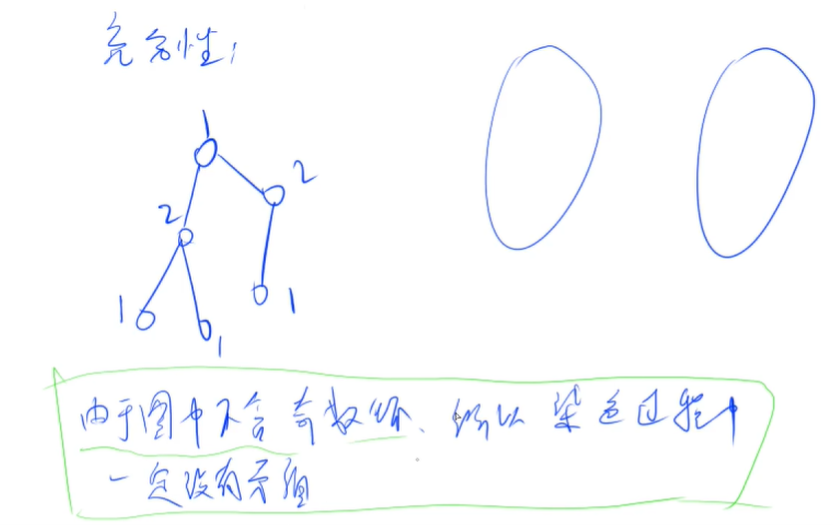 充分性:
1
2
2
1
1
1
由于图中不含奇数环、所以染色过程中
一定没有矛盾